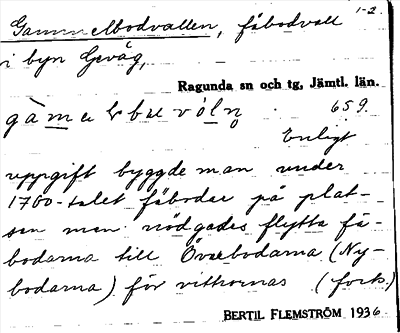 1-2.
Gammelbodvallen, fäbodvall
i byn Gevåg,
Ragunda sn och tg, Jämtl. län.
659.
Enligt
uppgift byggde man under
1700-talet fäbodar på plat-
sen men nödgades flytta fä-
bodarna till Överbodarna (Ny-
bodarna) för vittrornas (forts.)
BERTIL FLEMSTRÖM 1936